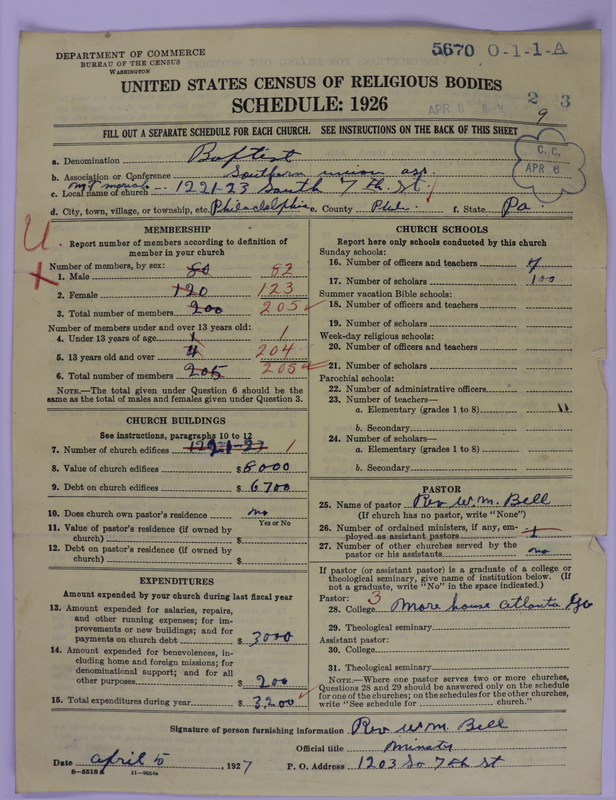 DEPARTMENT OF COMMERCE
BUREAU OF THE CENSUS
WASHINGTON
5670 O-1-1-A
UNITED STATES CENSUS OF RELIGIOUS BODIES
SCHEDULE: 1926
APR 6
2 3
9
FILL OUT A SEPARATE SCHEDULE FOR EACH CHURCH. SEE INSTRUCTIONS ON THE BACK OF THIS SHEET
C. C.
APR 6
a. Denomination Baptist
b. Association or Conference Southern union ass.
c. Local name of church 1221-23 South 7 th. St.
d. City, town, village, or township, etc. Philadelphia e. County Phil. f. State Pa.
MEMBERSHIP
Report number of members according to definition of member in your church
Number of members, by sex:
1. Male 80 82
2. Female 120 123
3. Total number of members 200 205
Number of members under and over 13 years old:
4. Under 13 years of age 1 1
5. 13 years old and over 4 204
6. Total number of members 205 205
NOTE.—The total given under Question 6 should be
same as the total of males and females given under Question 3.
CHURCH BUILDINGS
See instructions, paragraphs 10 to 12
7. Number of church edifices 1221-23 1
8. Value of church edifices $8000
9. Debt on church edifices $6700
10. Does church own pastor's residence? no
Yes or No
11. Value of pastor's residence (if owned by
church) $
12. Debt on pastor's residence (if owned by
church) $
EXPENDITURES
Amount expended by your church during last fiscal year
13. Amount expended for salaries, repairs,
and other running expenses; for im-
provements or new buildings; and for
payments on church debt $ 3000
14. Amount expended for benevolences, in-
cluding home and foreign missions; for
denominational support; and for all
other purposes $ 200
15. Total expenditures during year $ 3,200
CHURCH SCHOOLS
Report here only schools conducted by this church
Sunday schools:
16. Number of officers and teachers 7
17. Number of scholars 100
Summer vacation Bible schools:
18. Number of officers and teachers
19. Number of scholars
Week-day religious schools:
20. Number of officers and teachers
21. Number of scholars
Parochial schools:
22. Number of administrative officers
23. Number of teachers—
a. Elementary (grades 1 to 8)
b. Secondary
24. Number of scholars—
a. Elementary (grades 1 to 8)
b. Secondary
PASTOR
25. Name of pastor Rev W. M. Bell
(If church has no pastor, write "None")
26. Number of ordained ministers, if any, em-
ployed as assistant pastors 1
27. Number of other churches served by the
pastor or his assistants no
If pastor (or assistant pastor) is a graduate of a college or
theological seminary, give name of institution below. (If
not a graduate, write "No" in the space indicated.)
Pastor: 3
28. College More house atlanta Ga
29. Theological seminary
Assistant pastor:
30. College
31. Theological seminary
NOTE.—Where one pastor serves two or more churches,
Questions 28 and 29 should be answered only on the schedule
for one of the churches; on the schedules for the other churches,
write "See schedule for church."
Signature of person furnishing information Rev W M Bell
Official title Minister
Date april 5, 1927 P. O. Address 1203 So 7th St
8-5518a 11-9054a